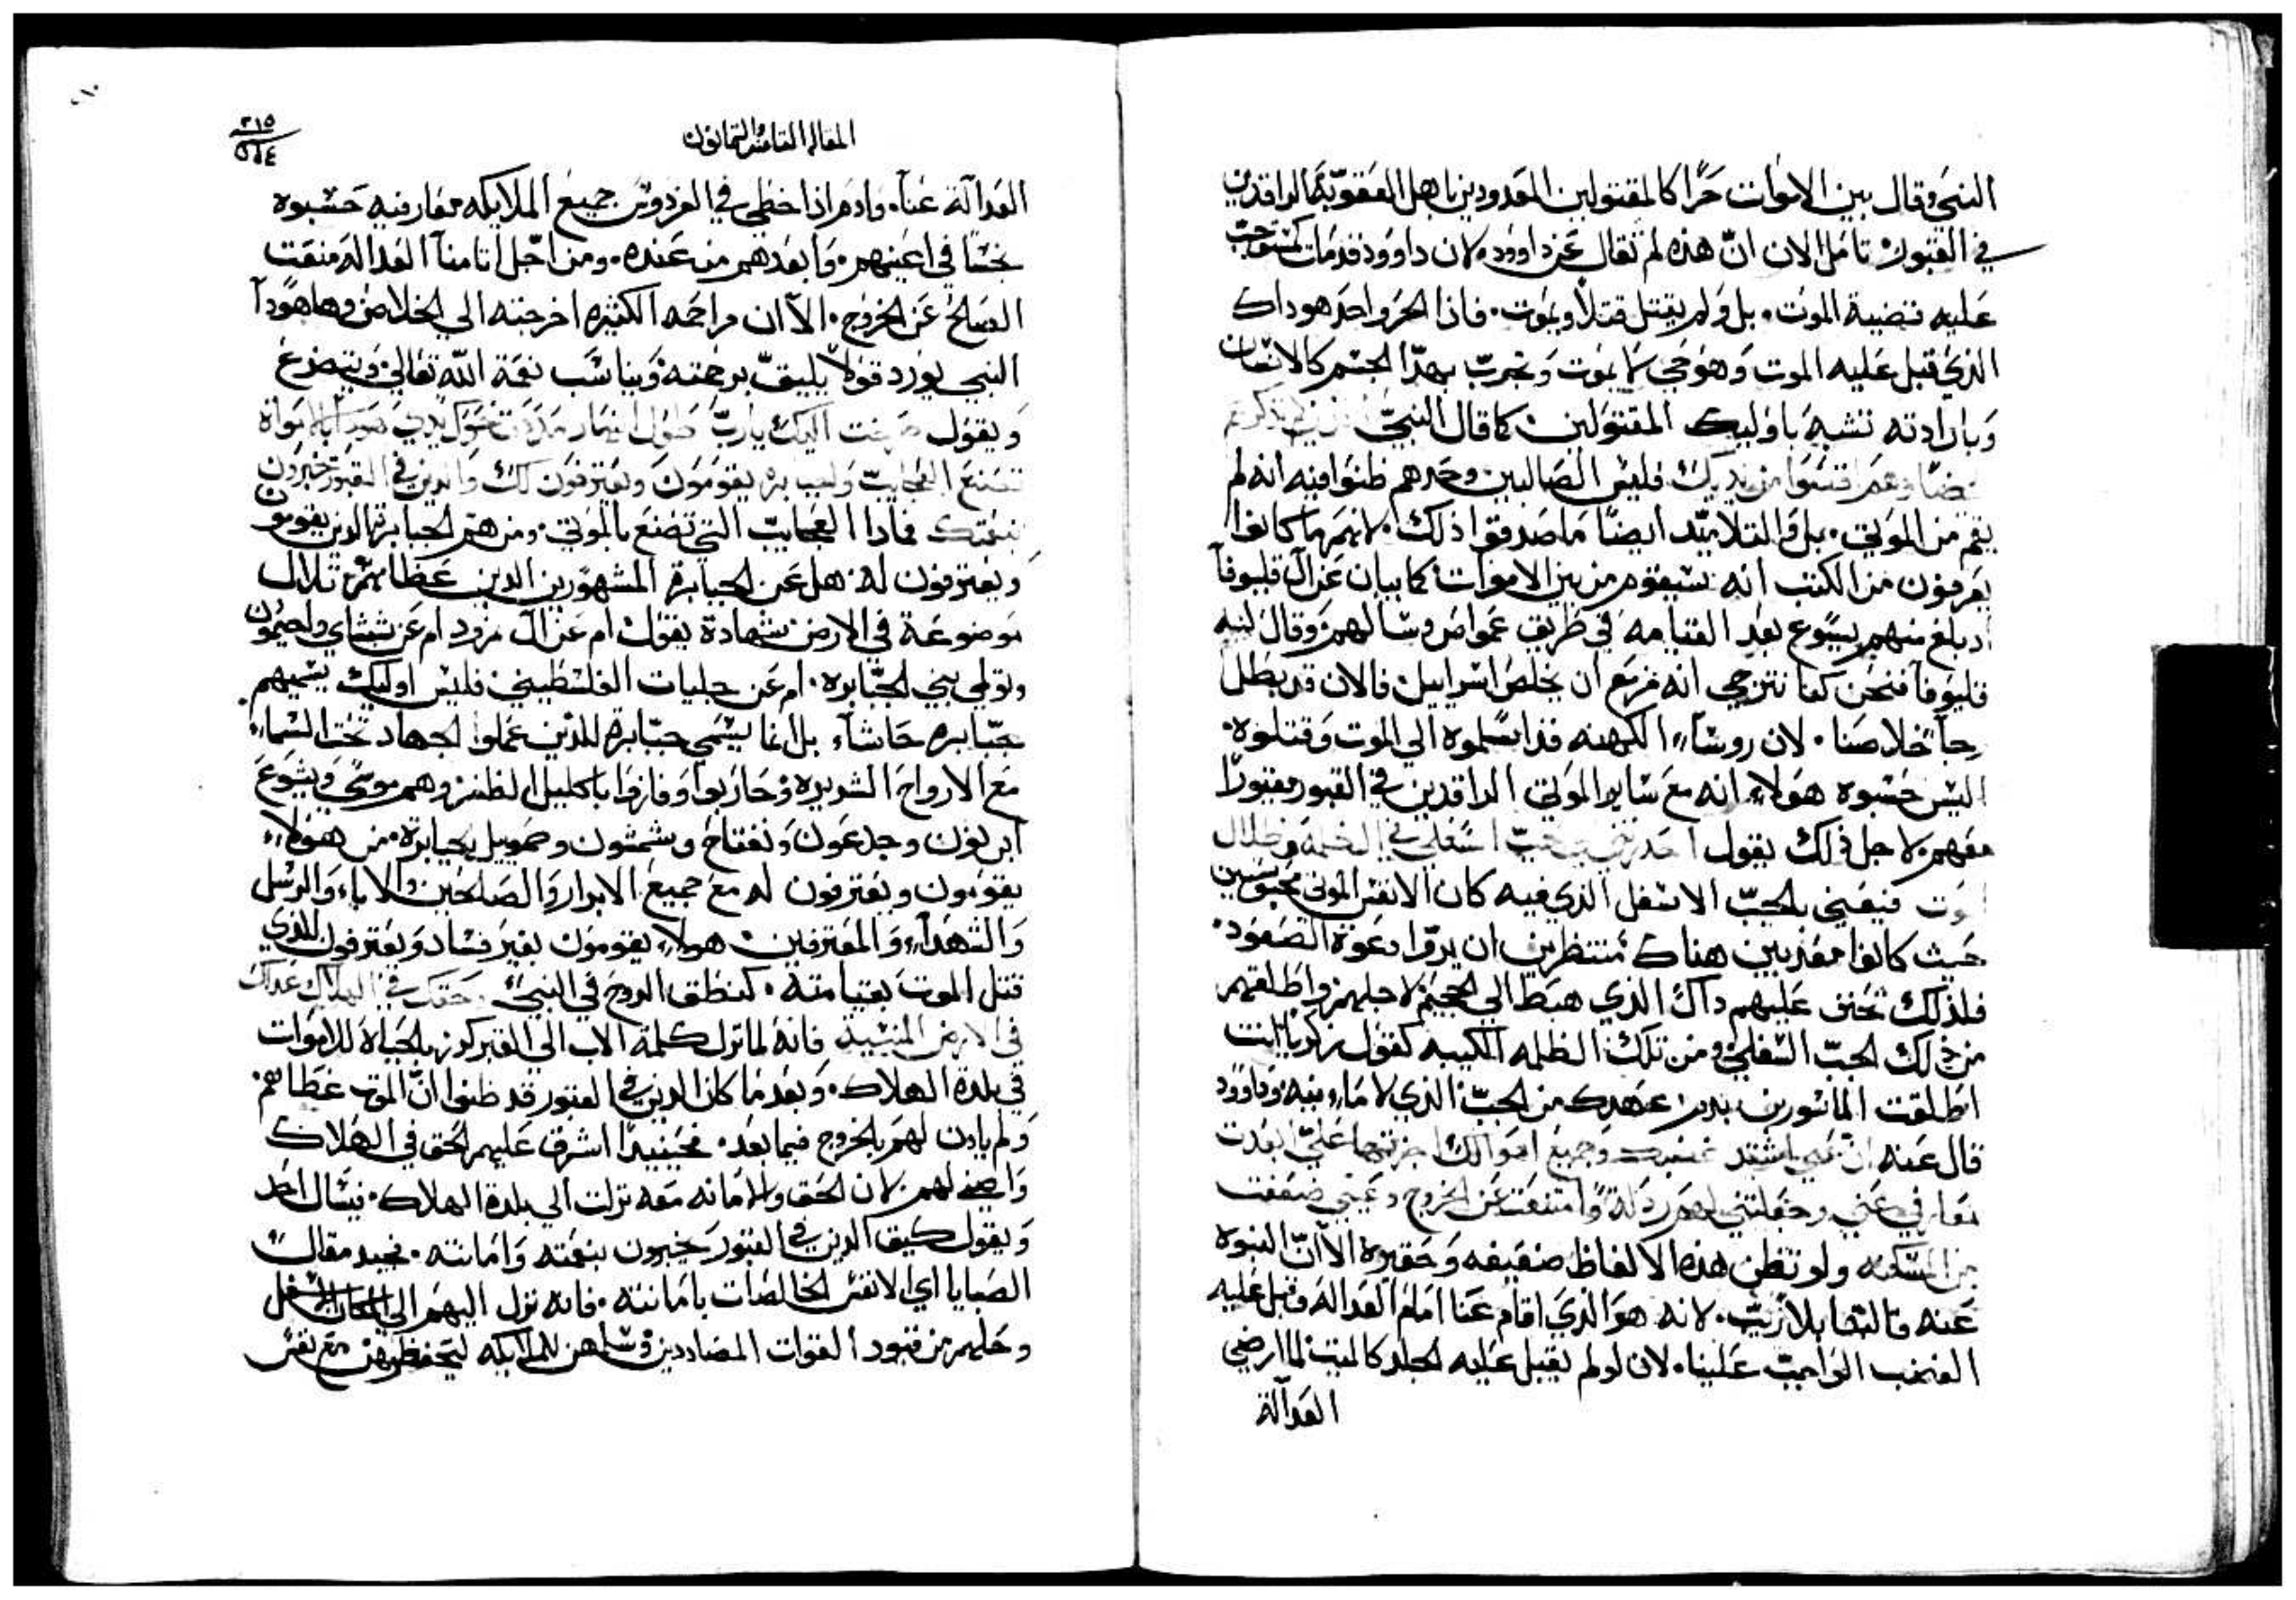 النبي وقال بين الاموات حرًا كالمقتولين المعدودين باهل العقوبة كالراقدين
في القبور تامل الان انّ هذه لم تقال عن داوود لان داوود قد مات كمستوجب
عليه قضية الموت. بل ولم يقتل قتلاً ويموت. فاذا الحر واحد هو داك
الذي قبل عليه الموت وهو حي لا يموت وتجرب بهدا الجسم كالانسان
وبارادته تشبه باوليك المقتولين كما قال النبي
ايضًا وهم اقتنوا من يديك فليس الصالبين وحدهم ظنوا فيه انه لم
يقم من الموتي. بل والتلاميد ايضًا ما صدقوا ذلك. لانهم ما كانوا
يعرفون من الكتب انه سيقوم من بين الاموات كما بيان عن آل قليوفا
اد بلغ منهم يسوع بعد القيامه في طريق عمواص وسالهم وقال لنبه
قليوفا فنحن كنا نترجي انه مزمع ان يخلص اسراييل فالان قد بطل
رجآ خلاصنا. لان روسآء الكهنه قد اسلموه الي الموت وقتلوه.
اليس حسبوه هولاء انه مع ساير الموتي الراقدين في القبور مقبورًا
معهم. لاجل ذلك يقول احدرتني في جبّ اسفلي في الظلمه وظلال
الموت فيعني بالجبّ الاسفل الدي فيه كان الانفس الموتي محبوسين
حيث كانوا معذبين هناك منتظرين ان يرقوا دعوة الصعود.
فلذلك تحنن عليهم داك الذي هبط الي الجحيم لاجلهم واطلقهم
من ذلك الجبّ السفلي ومن تلك الظلمه الكييبه كقول زكريا انت
اطلقت الماسورين بدم عهدك من الجبّ الذي لا ماء فيه وداوود
قال عنه انّ علي اشتد غضبك وجميع اهوالك اجزتها عليّ ابعدت
معارفي عني وجعلتني لهم رذلة وامتنعت عن الخروج وعيني ضعفت
من المسكنه ولو تظن هذه الالفاظ ضعيفه وحقيره الا انّ النبوه
عنه قالتها بلا ريب. لانه هو الذي اقام عنا امام العدالة وقبل عليه
الغضب الواجب علينا. لان لو لم يقبل عليه الجلد كالميت لما ارضي
العدالة
المقاله الثامنه والثمانون
٣١٥
العدالة عنا. وادم اذا خطي في الفردوس جميع الملايكه معارفيه حسبوه
نجسًا في اعينهم. وابعدهم من عنده. ومن اجل اثامنا العداله منعت
الصالح عن الخروج. الاّ ان مراحمه الكثيره اخرجته الي الخلاص وها هوذا
النبي يورد قولاً يليق برحمته ويناسب نعمة الله تعالي ويتضرع
ويقول صرخت اليك يارب طول النهار مددت نحوك يدي هودا بالاموات
تصنع العجايب والجبابره يقومون ويعترفون لك والذين في القبور يخبرون
بنعمتك فمادا العجايب التي تصنع بالموتي. ومن هم الجبابرة الذين يقومون
ويعترفون له هل عن الجبابرة المشهورين الدين عظامهم تلال
موضوعة في الارض شهادة يقول ام عن آل نمرود ام عن شيشاي واحيمون
وتولمي بني الجبابره. ام عن جليات الفلسطيني فليس اوليك يسميهم
جبّابره حاشآء. بل انما يسمي جبّابره للدين عملوا الجهاد تحت السماء
مع الارواح الشريره وحاربوا وفازوا باكليل الظفر وهم موسي ويشوع
ابن نون وجدعون ونفتاح وشمشون وصموييل جبابرة من هولاء
يقومون ويعترفون له مع جميع الابرار والصالحين والاباء والرسل
والشهدآء والمعترفين هولاء يقومون بغير فساد ويعترفون للذي
قتل الموت بقيامته. كنطق الروح في النبي وحقك في الهلاك عدلك
في الارض المنسية فانه لما نزل كلمة الاب الي القبر كرز بالحياة للاموات
في بلدة الهلاك. وبعد ما كان الدين في القبور قد ظنوا انّ الموت غطاهم
ولم يادن لهم بالخروج فيما بعد. فحينيدًا اشرق عليهم الحق في الهلاك
واضي لهم. لان الحق والامانه معه نزلت الي بلدة الهلاك. فيسال احد
ويقول كيف الدين في القبور يخبرون بنعمته وامانته. فحيد مقال
الصبايا اي الانفس الخالصات بامانته. فانه نزل اليهم الي المكان السفل
وحلهم من قيود القوات المضاددين وسلمهن للملايكه ليحفظوهن مع نفس